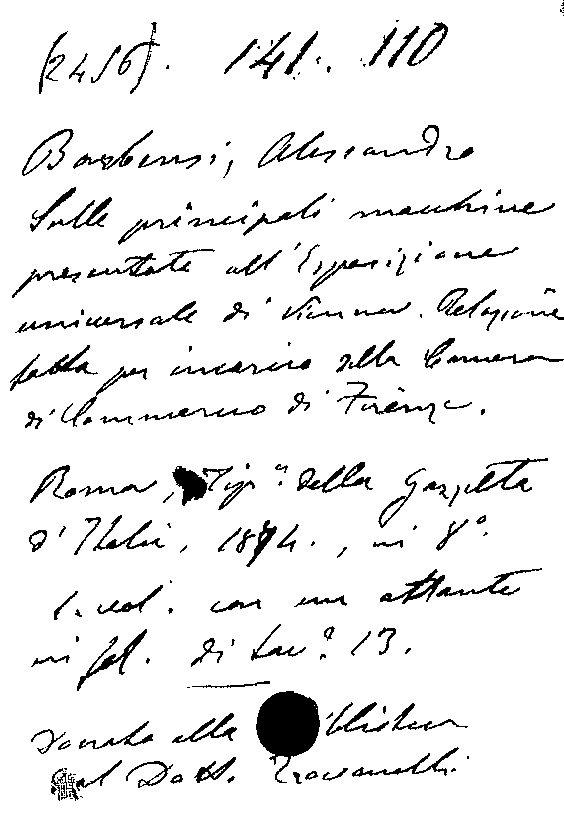 (2456). 141. 110
Barbensi, Alessandro
Sulle principali macchine
presentate all'Esposizione
universale di Vienna. Relazione
fatta per incarico della Camera
di Commercio di Firenze.
Roma, Tip.ª della Gazzetta
d'Italia, 1874., in 8°.
1. vol. con un atlante
in fol. di tav.e 13.
Donata alla
Dott.